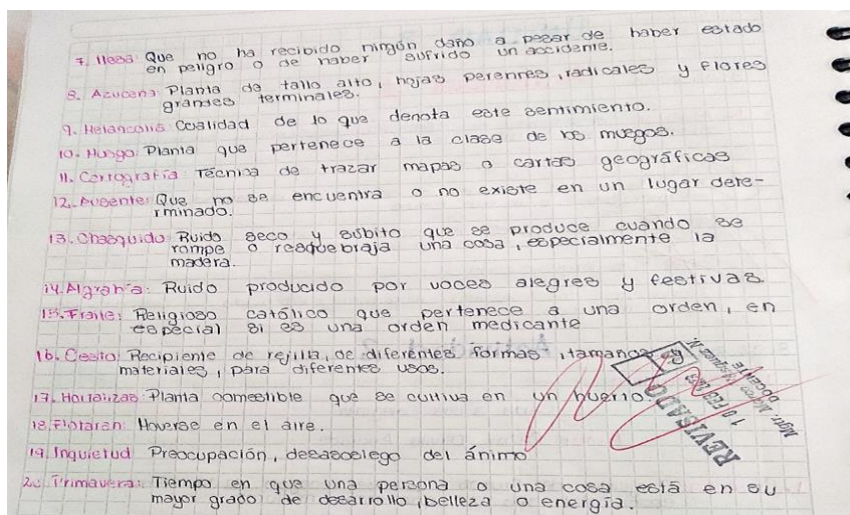 7. Ilesa: Que no ha recibido ningún daño a pesar de haber estado
en peligro o de haber sufrido un accidente.
8. Azucena: Planta de tallo alto, hojas perennes, radicales y flores
grandes terminales.
9. Melancolia: Cualidad de lo que denota este sentimiento.
10. Musgo: Planta que pertenece a la clase de los musgos.
11. Cartografía: Técnica de trazar mapas o cartas geográficas
12. Ausente: Que no se encuentra o no existe en un lugar dete-
rminado.
13. Chasquido: Ruido seco y súbito que se produce cuando se
rompe o resquebraja una cosa, especialmente la
madera.
14. Algrabía: Ruido producido por voces alegres y festivas
15. Fraile: Religioso católico que pertenece a una orden, en
especial si es una orden medicante
16. Cesito: Recipiente de rejilla, de diferentes formas, tamanos y
materiales, para diferentes usos.
17. Hortalizas: Planta comestible que se cultiva en un huerto.
18. Flotaren: Moverse en el aire.
19. Inquietud: Preocupación, desasosiego del ánimo
20. Primavera: Tiempo en que una persona o una cosa está en su
mayor grado de desarrollo, belleza o energía.
REVISADO
10 FEB 2023
DOCENTE